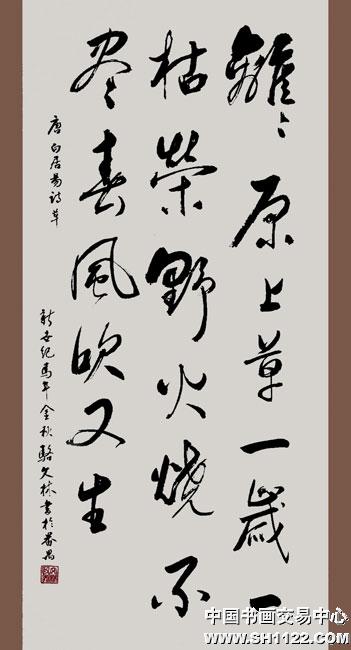 離〻原上草一歲一
枯榮野火燒不
尽〻春風吹又生
唐白居易詩草
新世纪馬年金秋駱文林書於番禺
中国书画交易中心
WWW.SH1122.COM